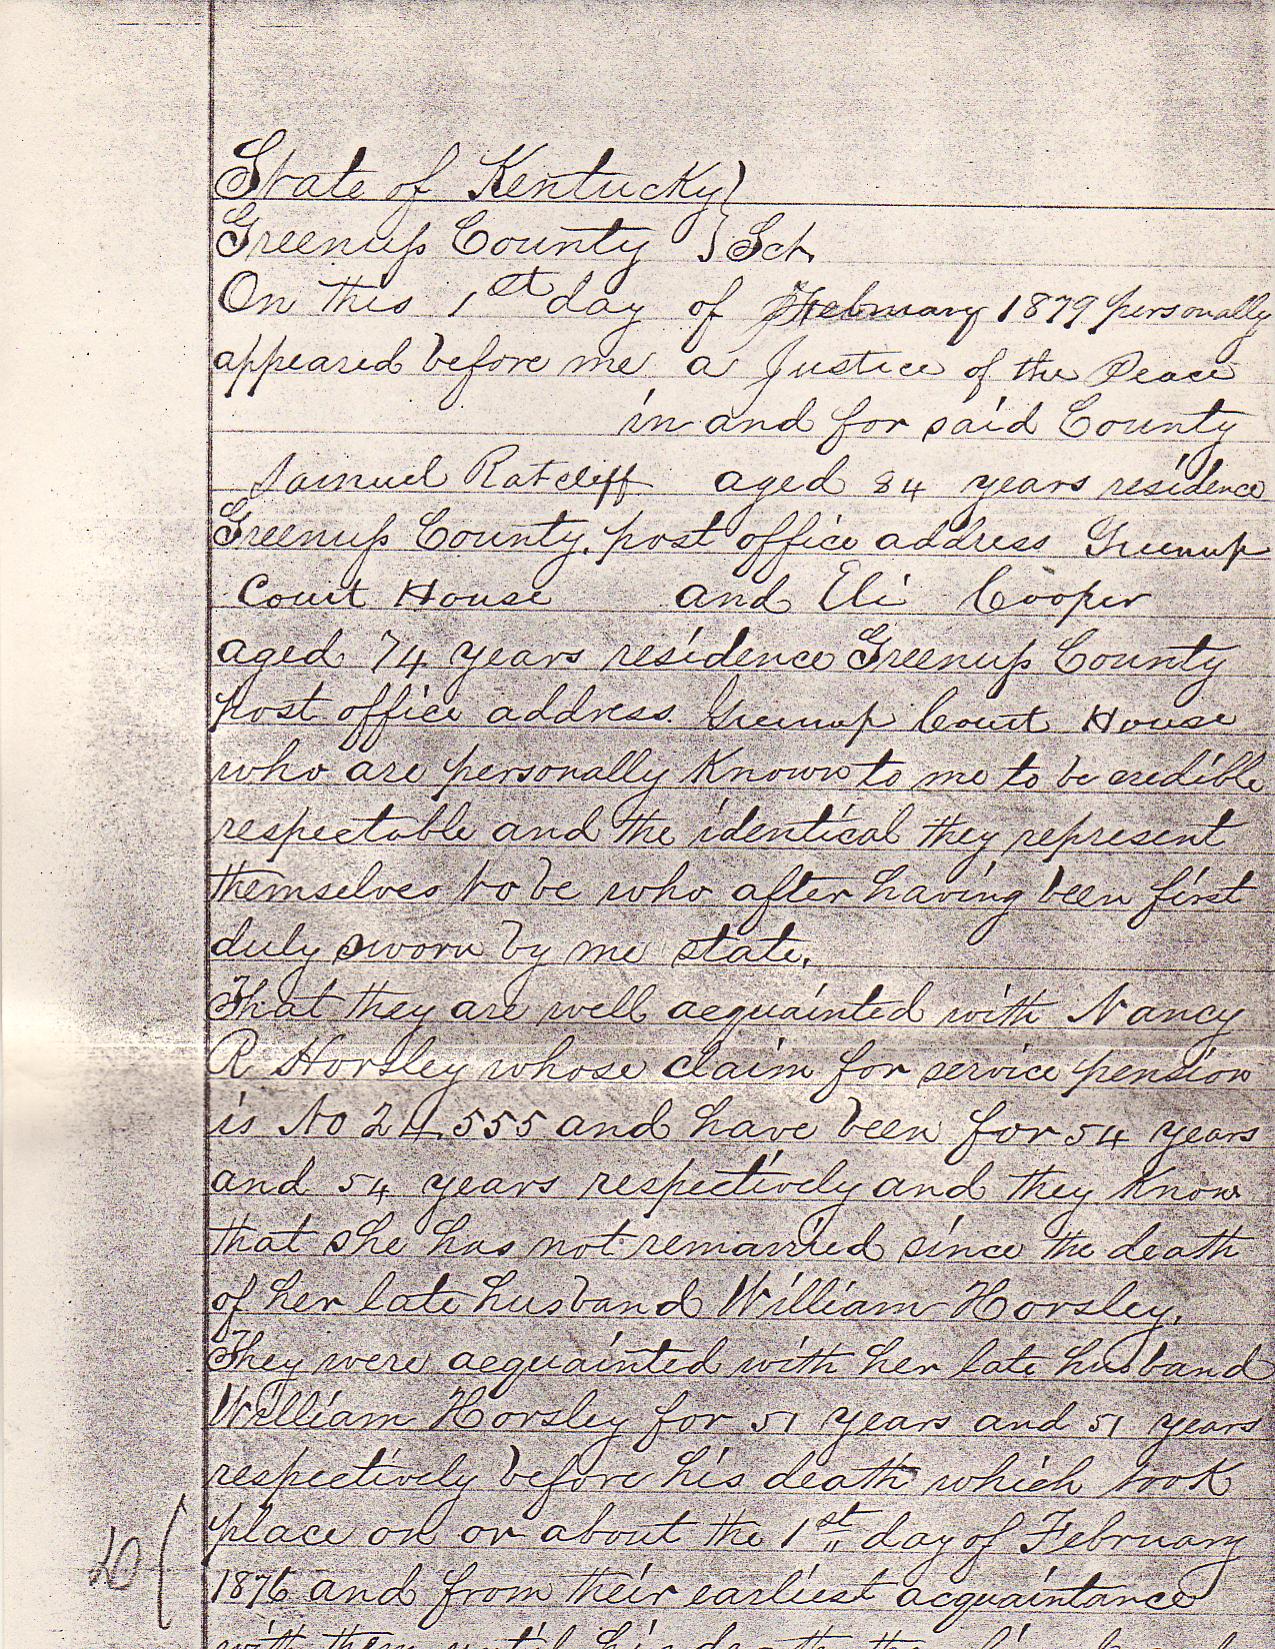 State of Kentucky }
Greenup County } Sct.
On this 1st day of February 1879 personally
appeared before me a Justice of the Peace
in and for said County
Samuel Ratcliff aged 84 years residence
Greenup County, post office address Greenup
Court House and Eli Cooper
aged 74 years residence Greenup County
post office address Greenup Court House
who are personally Known to me to be credible
respectable and the identical they represent
themselves to be who after having been first
duly sworn by me state.
That they are well acquainted with Nancy
R Horsley whose claim for service pension
is No 24,555 and have been for 54 years
and 54 years respectively and they Know
that she has not remarried since the death
of her late husband William Horsley.
They were acquainted with her late husband
William Horsley for 51 years and 51 years
respectively before his death which took
place on or about the 1st day of February
1876 and from their earliest acquaintance
with them until his death they lived